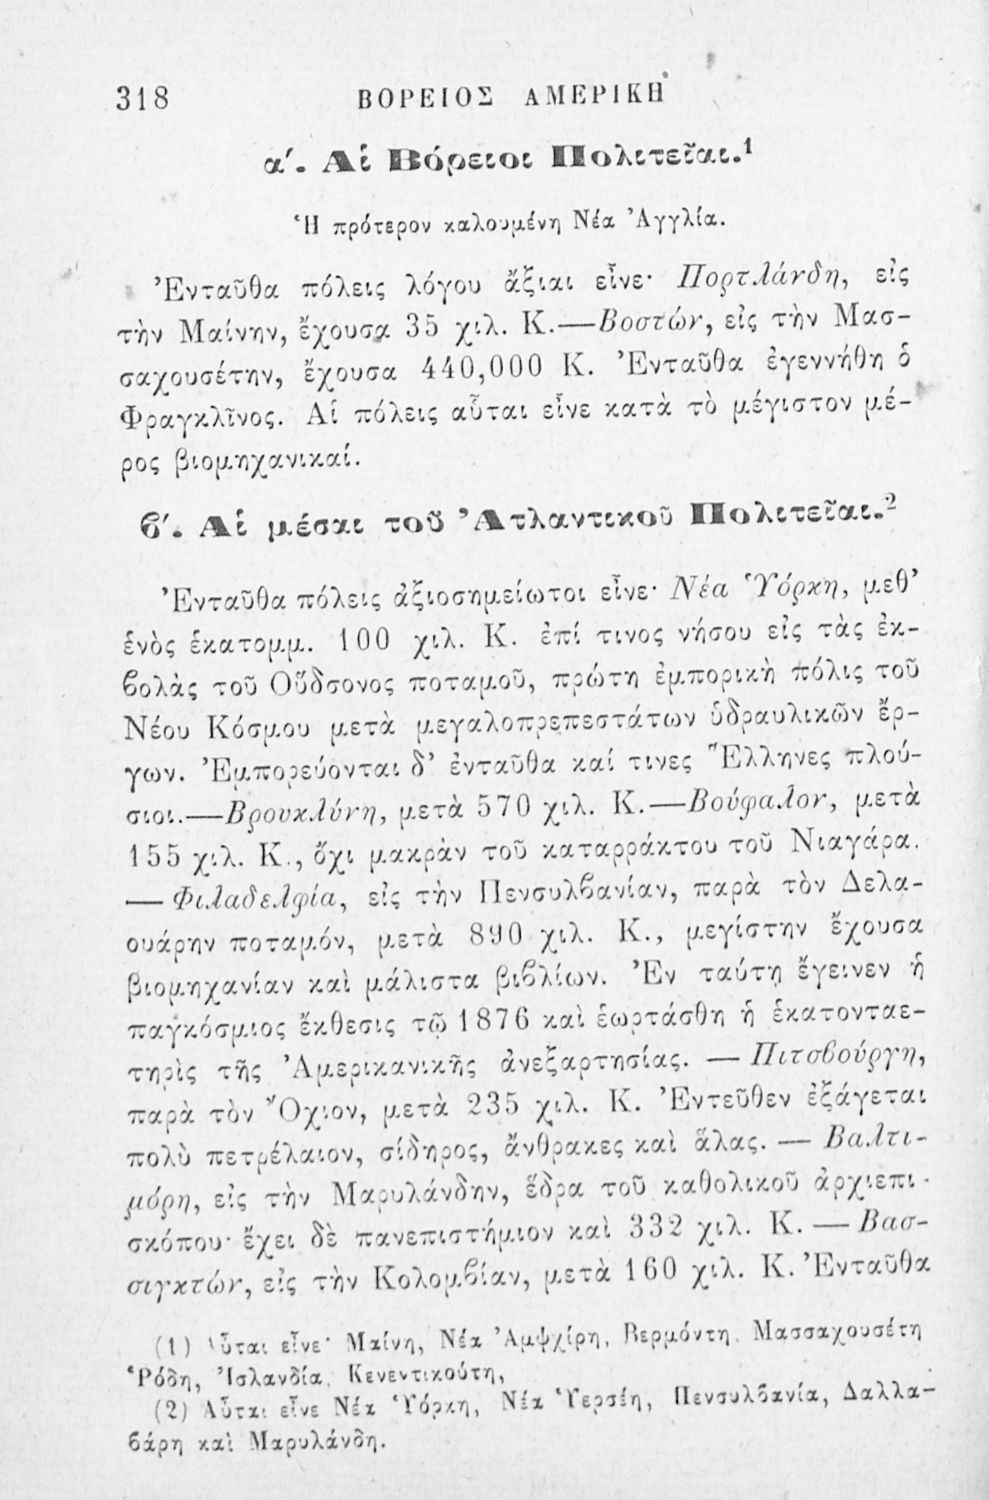 318 ΒΟΡΕΙΟΣ ΑΜΕΡΙΚΗ
α΄. Αἱ Βόρειοι Πολιτεῖαι.¹
Ἡ πρότερον καλουμένη Νέα Ἀγγλία.
Ἐνταῦθα πόλεις λόγου ἄξιαι εἶνε· Πορτλάνδη, εἰς
τὴν Μαίνην, ἔχουσα 35 χιλ. Κ.—Βοστών, εἰς τὴν Μασ-
σαχουσέτην, ἔχουσα 440,000 Κ. Ἐνταῦθα ἐγεννήθη ὁ
Φραγκλῖνος. Αἱ πόλεις αὗται εἶνε κατὰ τὸ μέγιστον μέ-
ρος βιομηχανικαί.
ϐ΄. Αἱ μέσαι τοῦ Ἀτλαντικοῦ Πολιτεῖαι.²
Ἐνταῦθα πόλεις ἀξιοσημείωτοι εἶνε· Νέα Ὑόρκη, μεθ’
ἑνὸς ἑκατομμ. 100 χιλ. Κ. ἐπί τινος νήσου εἰς τὰς ἐκ-
ϐολὰς τοῦ Οὕδσονος ποταμοῦ, πρώτη ἐμπορικὴ πόλις τοῦ
Νέου Κόσμου μετὰ μεγαλοπρεπεστάτων ὑδραυλικῶν ἔρ-
γων. Ἐμπορεύονται δ’ ἐνταῦθα καί τινες Ἕλληνες πλού-
σιοι.—Βρουκλύνη, μετὰ 570 χιλ. Κ.—Βούφαλον, μετὰ
155 χιλ. Κ., ὄχι μακρὰν τοῦ καταρράκτου τοῦ Νιαγάρα.
— Φιλαδελφία, εἰς τὴν Πενσυλϐανίαν, παρὰ τὸν Δελα-
ουάρην ποταμόν, μετὰ 890 χιλ. Κ., μεγίστην ἔχουσα
βιομηχανίαν καὶ μάλιστα βιϐλίων. Ἐν ταύτῃ ἔγεινεν ἡ
παγκόσμιος ἔκθεσις τῷ 1876 καὶ ἑωρτάσθη ἡ ἑκατονταε-
τηρὶς τῆς Ἀμερικανικῆς ἀνεξαρτησίας. — Πιτσϐούργη,
παρὰ τὸν Ὄχιον, μετὰ 235 χιλ. Κ. Ἐντεῦθεν ἐξάγεται
πολὺ πετρέλαιον, σίδηρος, ἄνθρακες καὶ ἅλας. — Βαλτι-
μόρη, εἰς τὴν Μαρυλάνδην, ἕδρα τοῦ καθολικοῦ ἀρχιεπι-
σκόπου· ἔχει δὲ πανεπιστήμιον καὶ 332 χιλ. Κ. — Βασ-
σιγκτών, εἰς τὴν Κολομϐίαν, μετὰ 160 χιλ. Κ. Ἐνταῦθα
(1) Αὗται εἶνε· Μαίνη, Νέα Ἀμψχίρη, Βερμόντη, Μασσαχουσέτη
Ῥόδη, Ἰσλανδία, Κενεντικούτη,
(2) Αὗται εἶνε Νέα Ὑόρκη, Νέα Ὑερσέη, Πενσυλϐανία, Δαλλα-
ϐάρη καὶ Μαρυλάνδη.